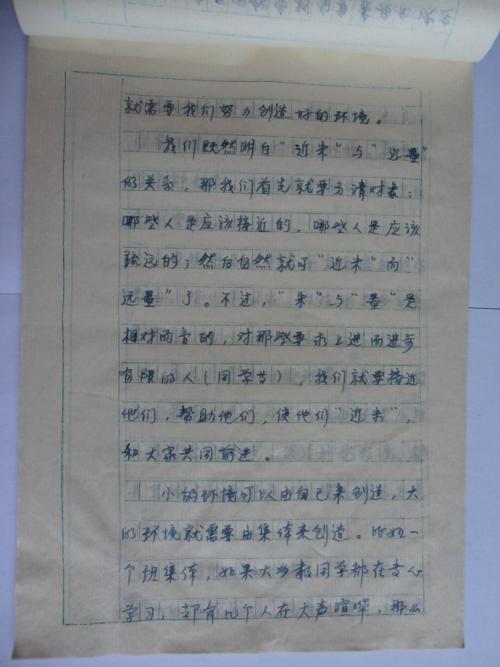 就需要我们努力创造好的环境。
我们既然明白“近朱”与“近墨”
的关系，那我们首先就要分清对象：
哪些人是应该接近的，哪些人是应该
疏远的；然后自然就可“近朱”而“
远墨”了。不过，“朱”与“墨”是
相对而言的，对那些要求上进而进步
有限的人（同学等），我们就要接近
他们，帮助他们，使他们“近朱”，
和大家共同前进。
小的环境可以由自己来创造，大
的环境就需要由集体来创造。比如一
个班集体，如果大多数同学都在专心
学习，却有几个人在大声喧哗，那么